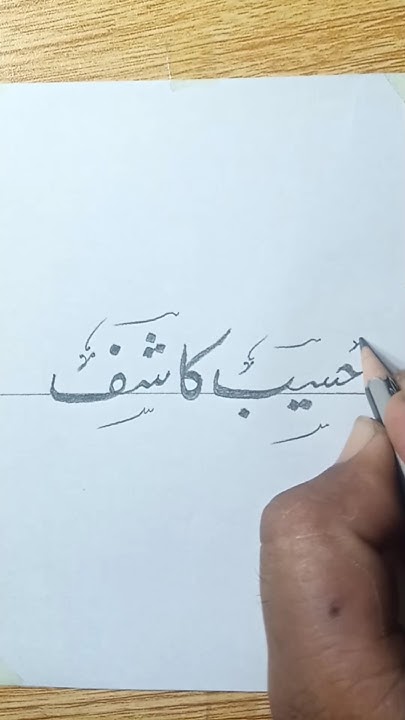 حسیب کاشف